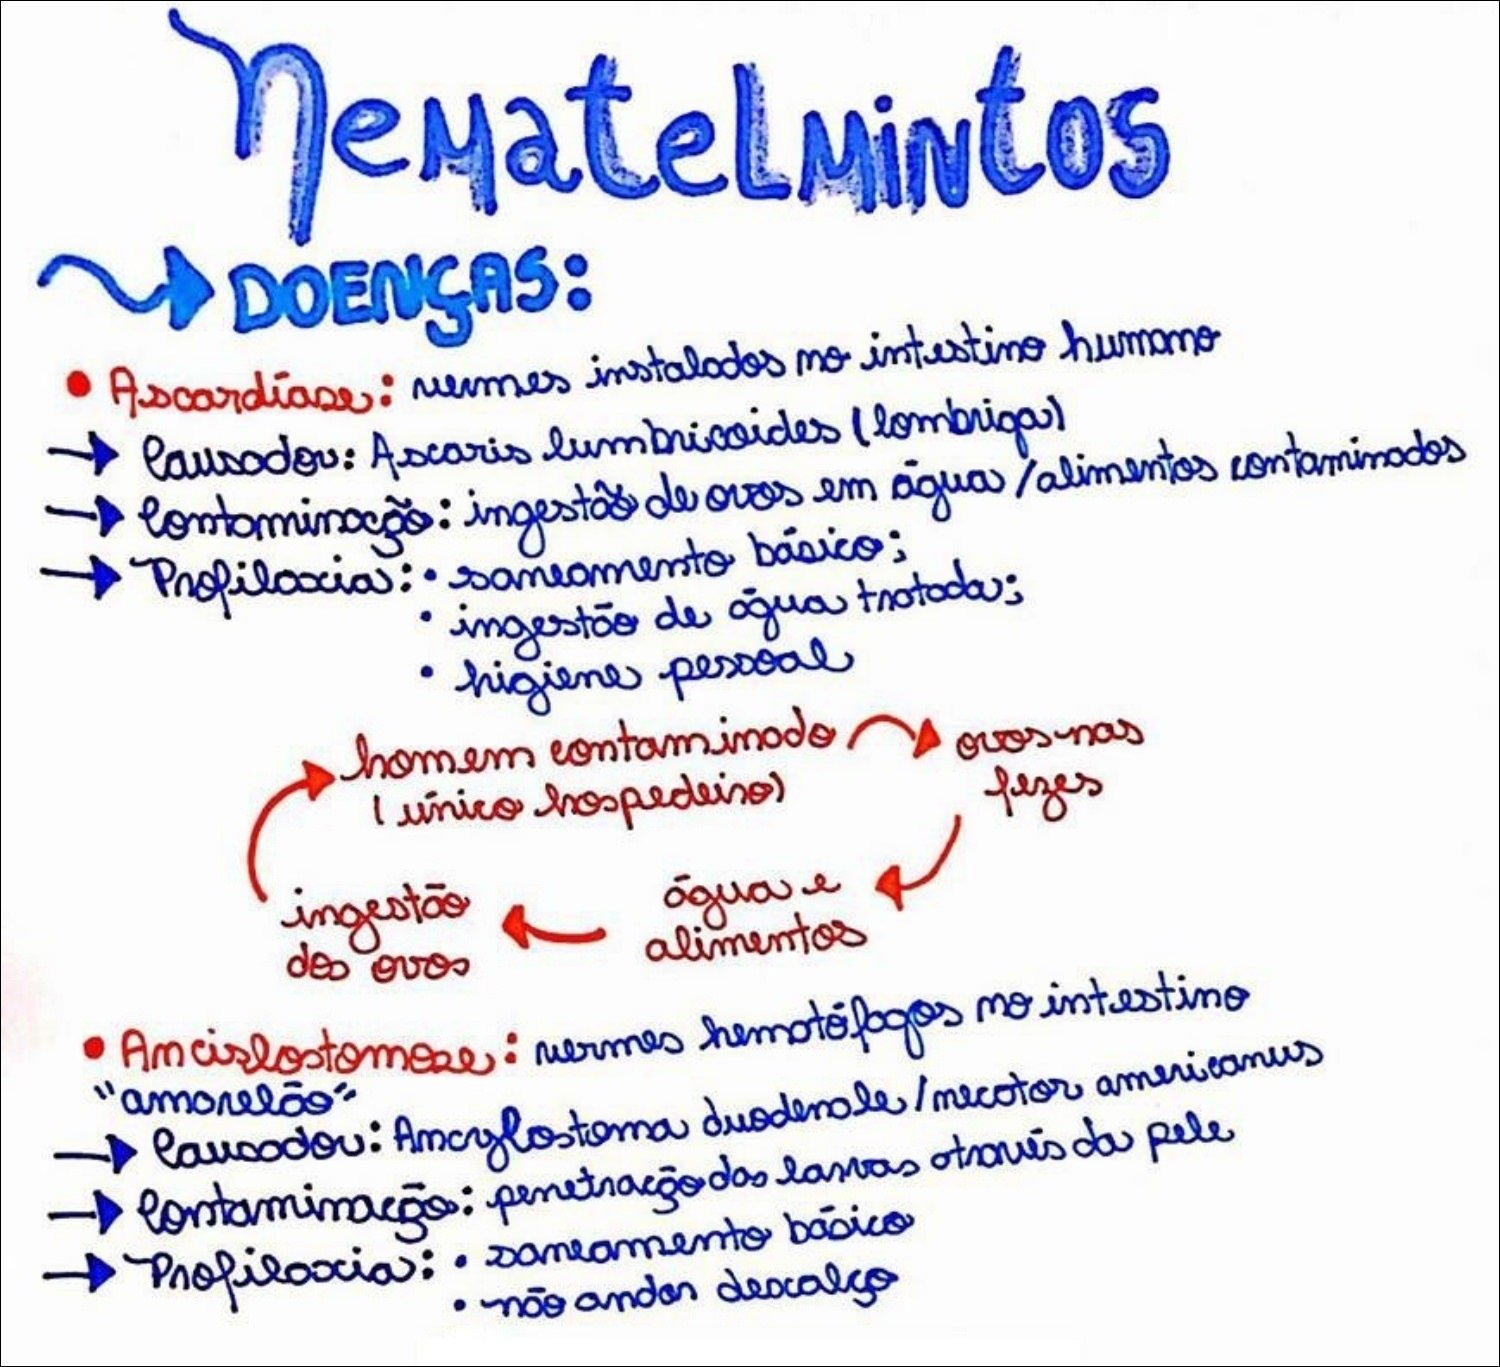 Nematelmintos
DOENÇAS:
• Ascardíase: vermes instalados no intestino humano
Causador: Ascaris lumbricoides (lombriga)
Contaminação: ingestão de ovos em água/alimentos contaminados
Profilaxia: • saneamento básico;
• ingestão de água tratada;
• higiene pessoal
homem contaminado
(único hospedeiro)
ovos nas
fezes
água e
alimentos
ingestão
dos ovos
• Ancislostomose: vermes hematófagos no intestino
"amarelão"
Causador: Ancylostoma duodenale/necator americanus
Contaminação: penetração das larvas através da pele
Profilaxia: • saneamento básico
• não andar descalço